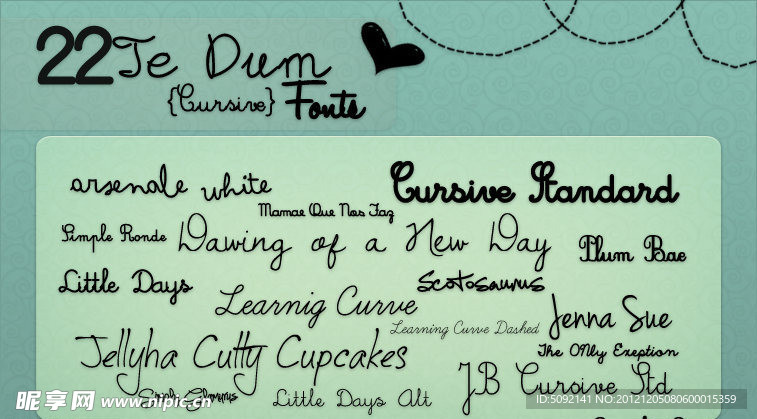 22 Te Dum
{Cursive} Fonts
arsenale white
Cursive Standard
Mamae Que Nos Faz
Simple Ronde
Dawing of a New Day
Plum Bae
Little Days
Scotosaurus
Learnig Curve
Jenna Sue
Learning Curve Dashed
Jellyha Cutty Cupcakes
The Only Exeption
JB Cursive Std
Little Days Alt
昵享网 www.nipic.cn
ID:5092141 NO:20121205080600015359